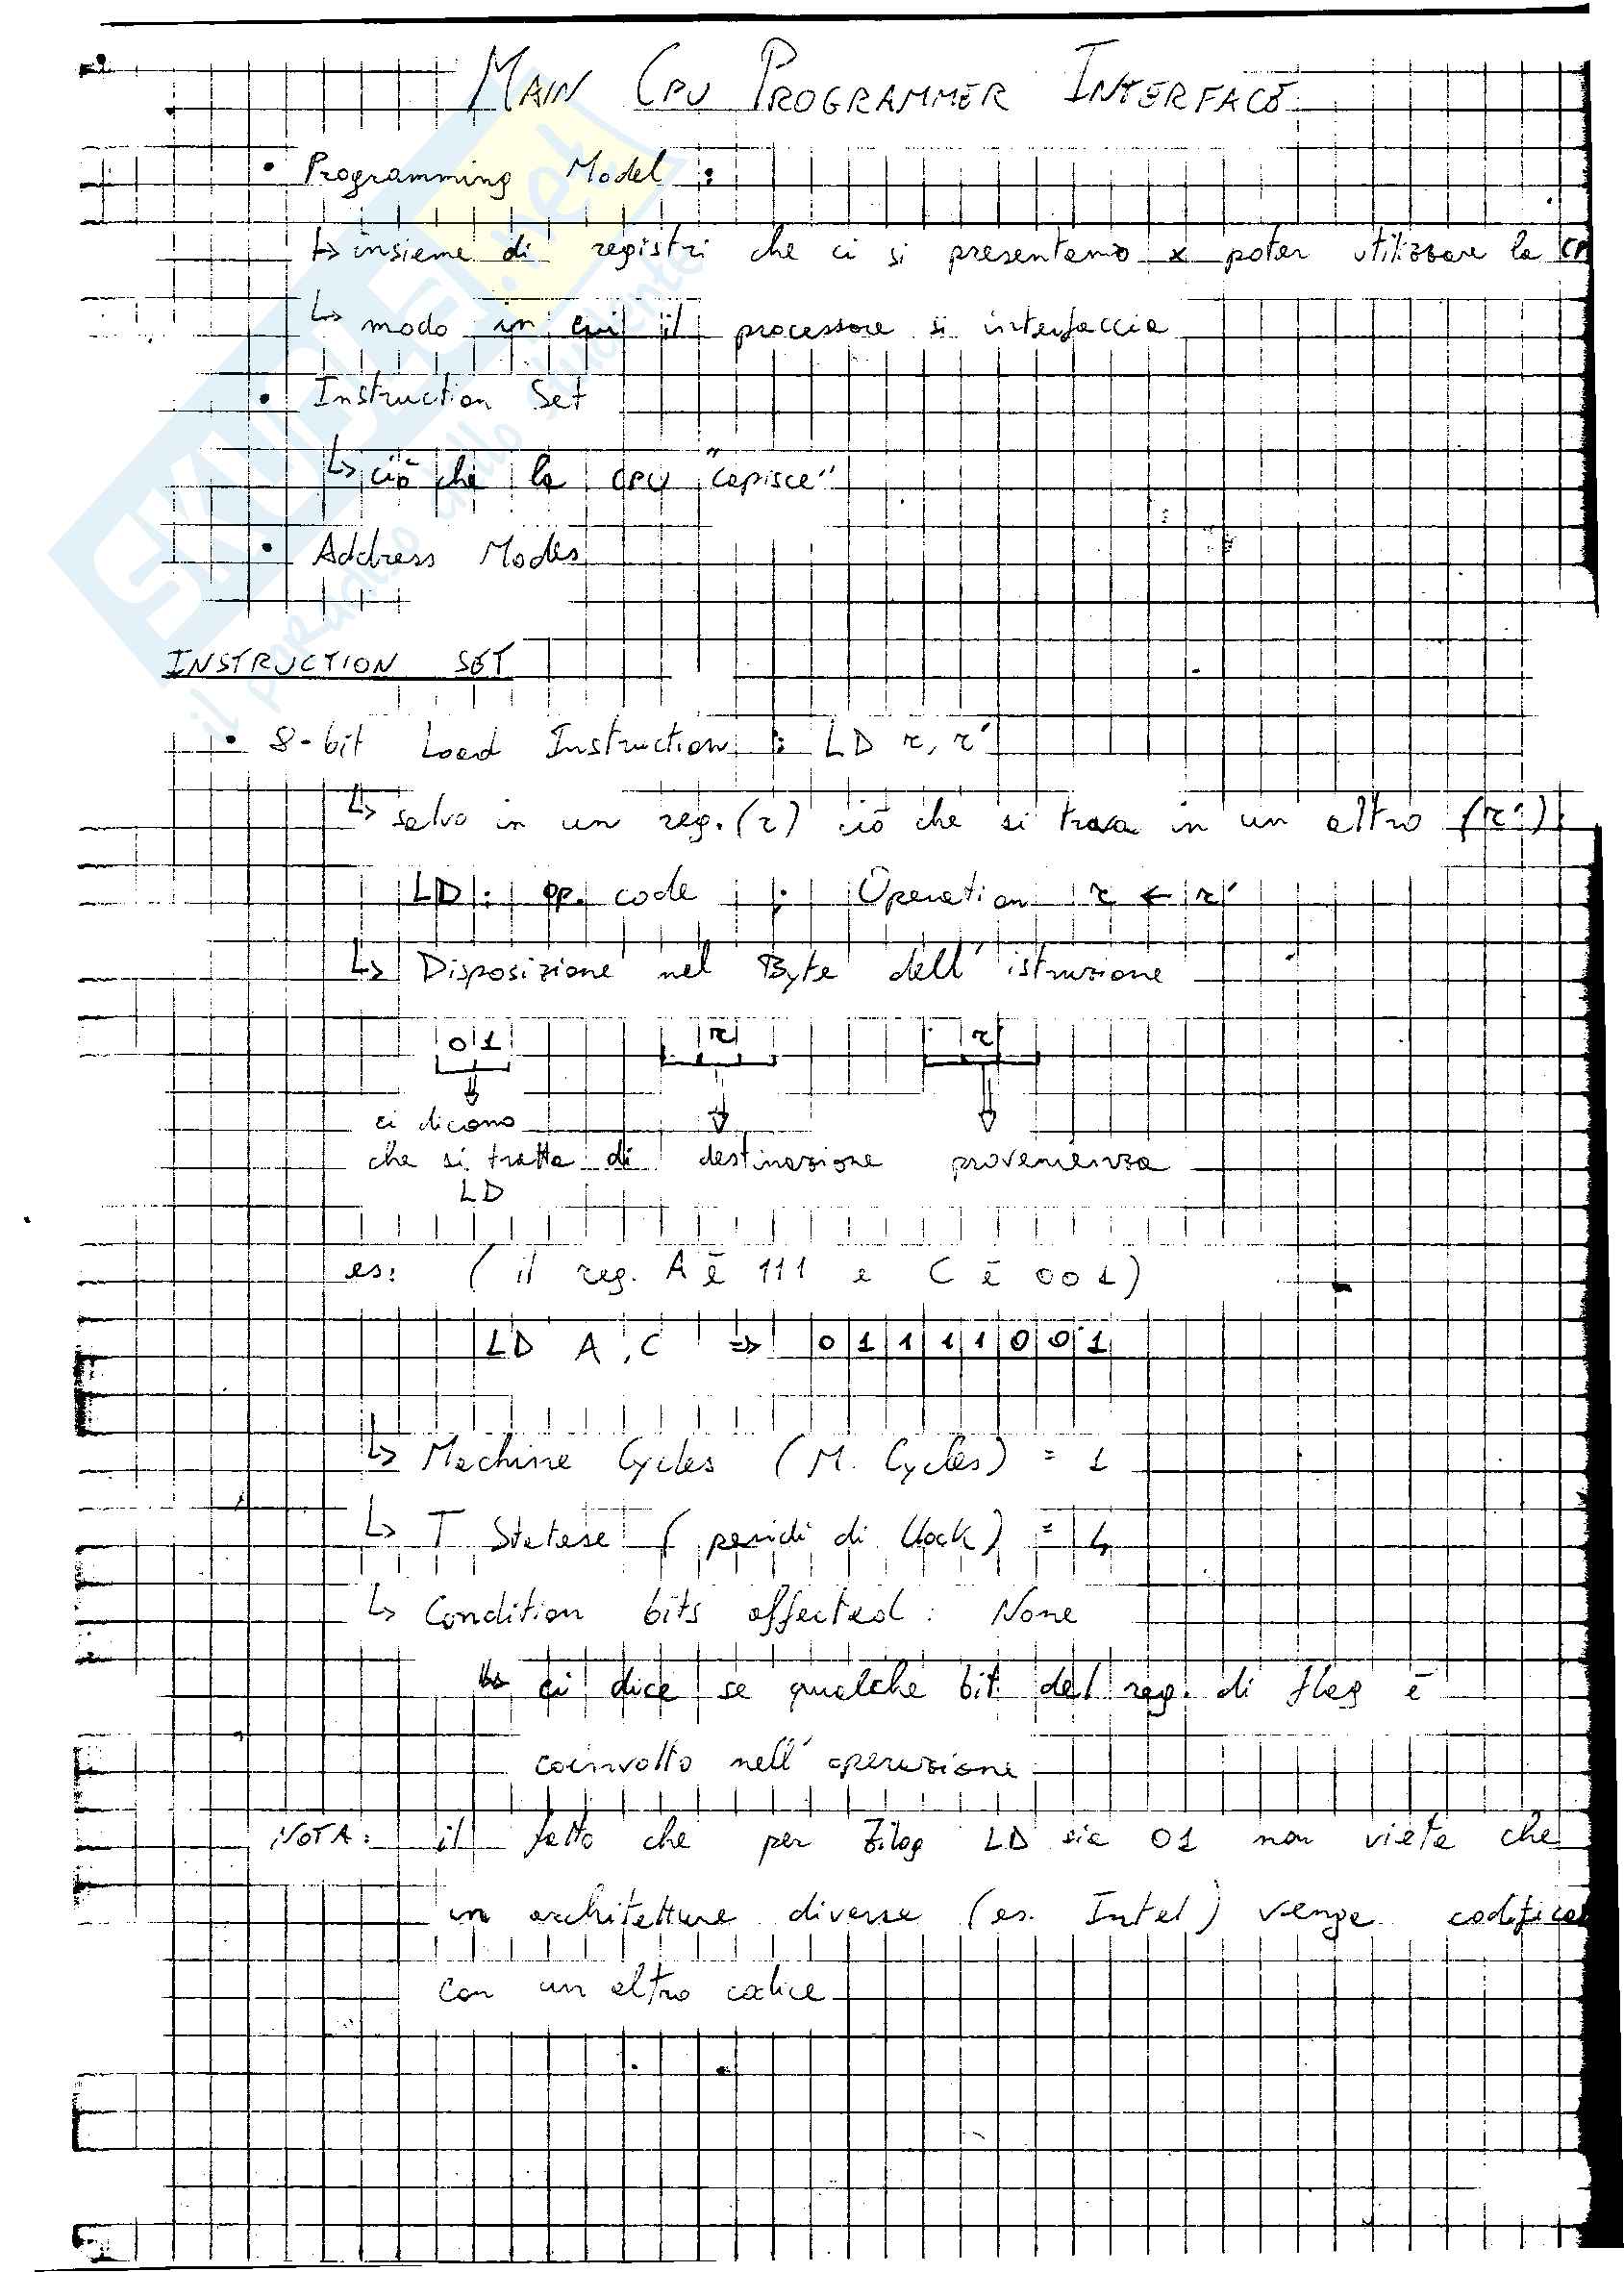 MAIN CPU PROGRAMMER INTERFACE
• Programming Model :
↳ insieme di registri che ci si presentano x poter utilizzare la CP
↳ modo in cui il processore si interfaccia
• Instruction Set
↳ ciò che la CPU "capisce"
• Address Modes
INSTRUCTION SET
• 8-bit Load Instruction : LD r, r'
↳ salvo in un reg. (r) ciò che si trova in un altro (r')
LD : op. code ; Operation r ← r'
↳ Disposizione nel Byte dell'istruzione
01 r r'
ci dicono
che si tratta di destinazione provenienza
LD
es: (il reg. A è 111 e C è 001)
LD A, C ⇒ 0 1 1 1 1 0 0 1
↳ Machine Cycles (M. Cycles) = 1
↳ T Statese (peridi di Clock) = 4
↳ Condition bits affected : None
↳ ci dice se qualche bit del reg. di flag è
coinvolto nell'operazione
NOTA: il fatto che per Zilog LD sia 01 non vieta che
in architetture diverse (es. Intel) venga codificat
con un altro codice
SKUOLA.net
il paradiso dello studente